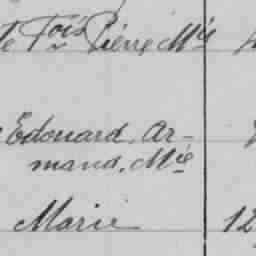 te Fois Pierre Mie
Edouard. Ar-
mand. Mie
Marie 12